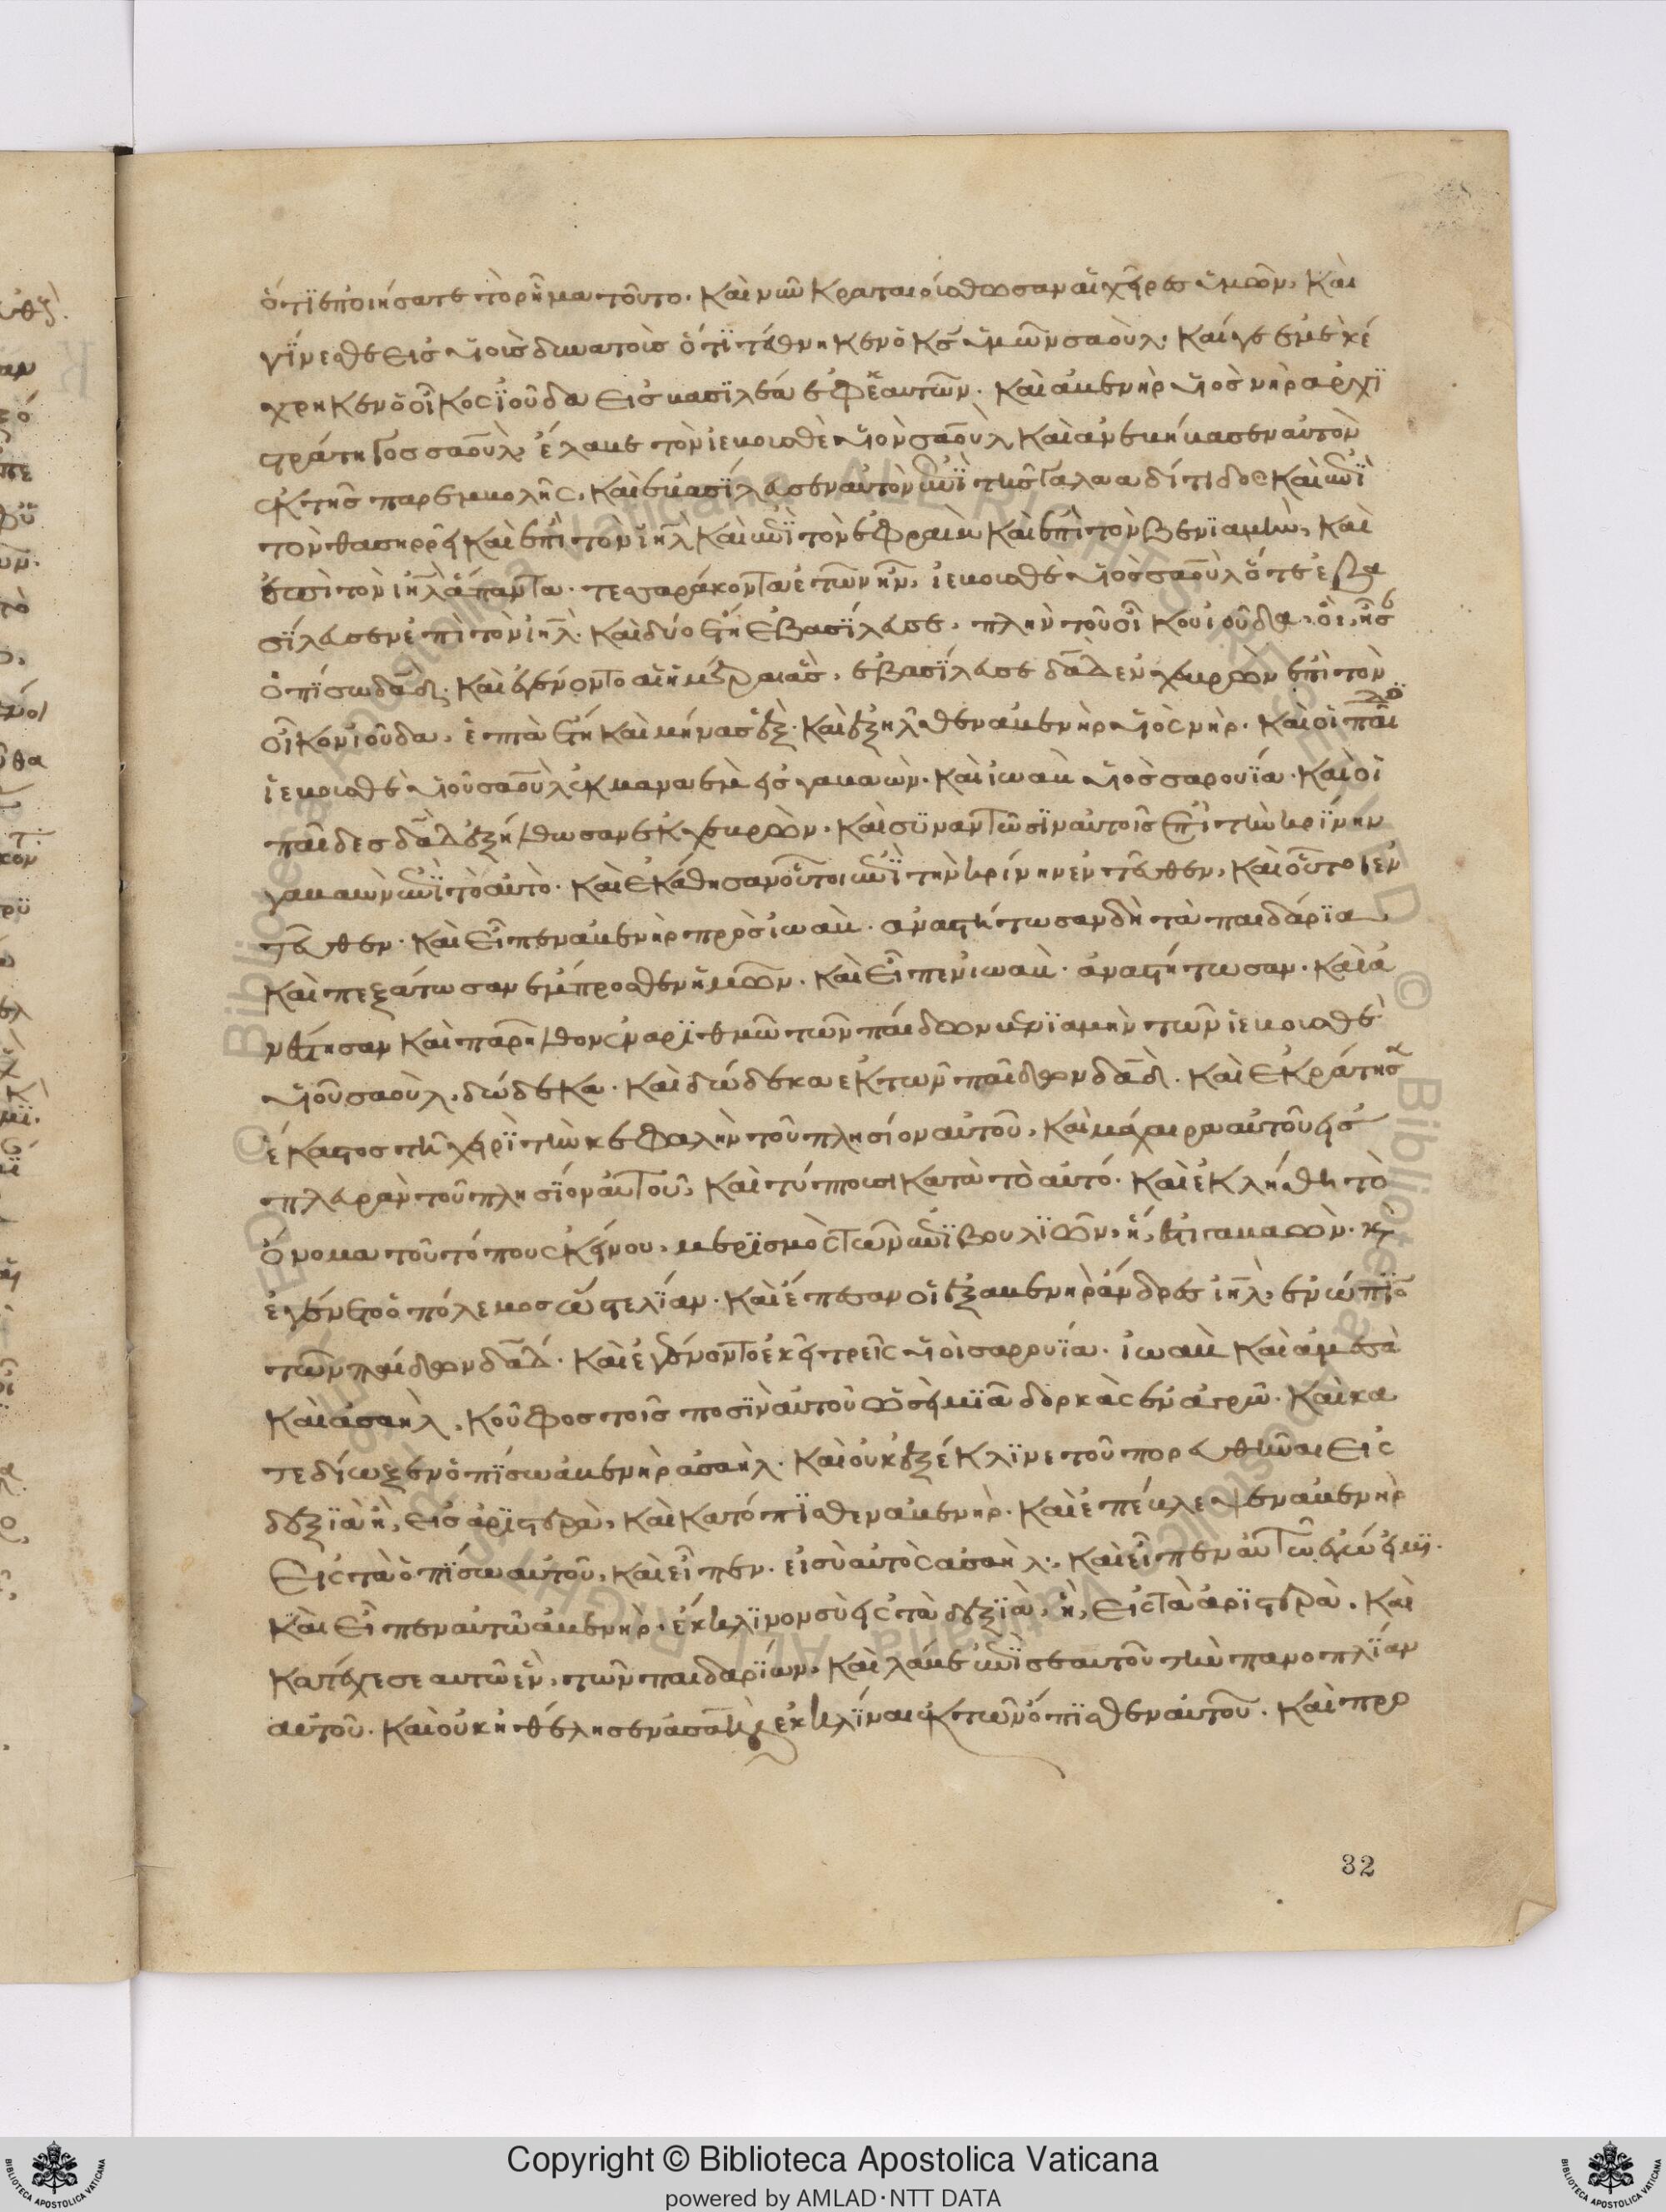 ὅτϊ ἐποιήσατε τὸ ρῆμα τοῦτο. Καὶ νῦν Κραταιούσθωσαν αἱ χεῖρες ὑμῶν, Καὶ
γίνεσθε εἰς υἱοὺς δυνατοὺς ὅτι τέθνηκεν ὁ κς ὑμῶν σαούλ. Καί γε ἐμὲ κέ
χρηκεν ὁ οἶκος ϊούδα εἰς βασϊλέα ἐφ ἑαυτῶν. Καὶ ἀβεννὴρ υἱὸς νὴρ ἀρχϊ
στράτηγος σαούλ, ἔλαβε τὸν ἰεβοσθὲ υἱὸν σαοὺλ Καὶ ἀνεβήβασεν αὐτὸν
ἐκ τῆς παρεμβολῆς, Καὶ ἐβασίλευσεν αὐτὸν ἐπὶ τὴν γαλααδίτιδος Καὶ ἐπὶ
τὸν θασηρρεὶ Καὶ ἐπὶ τὸν ϊηλ Καὶ ἐπὶ τὸν ἐφραὶμ Καὶ ἐπὶ τὸν βενϊαμὶν, Καὶ
ἐπὶ τὸν ιηλ ἅπαντα. τεσσαράκοντα ἐτῶν ἦν, ἰεβοσθὲ υἱὸς σαοὺλ ὅτε ἐβα
σίλευσεν ἐπὶ τὸν ιηλ. Καὶ δύο ἔτη ἐβασίλευσε, πλὴν τοῦ οἴκου ἰούδα, οἳ ἦσ
ὀπίσω δαδ. Καὶ ἐγένοντο αἱ ἡμέραι ἃς, ἐβασίλευσε δαδ ἐν χεβρὼν ἐπὶ τὸν
οἶκον ϊούδα, ἑπτὰ ἔτη Καὶ μῆνας ἕξ. Καὶ ἐξῆλθεν ἀβεννὴρ υἱὸς νὴρ. Καὶ οἱ παῖ
ἰεβοσθὲ υἱοῦ σαοὺλ ἐκ μαναὲμ εἰς γαβαών. Καὶ ἰωαβ υἱὸς σαρουϊά. Καὶ οἱ
παῖδες δαδ ἐξήλθωσαν ἐκ χεβρὼν. Καὶ συναντῶσϊν αὐτοῖς ἐπὶ τὴν κρίνην
γαβαὼν ἐπὶ τὸ αὐτὸ. Καὶ ἐκάθησαν οὗτοι ἐπὶ τὴν κρίνην ἐντεῦθεν, Καὶ οὗτοι ἐν
τεῦθεν. Καὶ εἶπεν ἀβεννὴρ πρὸς ἰωαβ. ἀναστήτωσαν δὴ τὰ παιδάρϊα
Καὶ πεξάτωσαν ἔμπροσθεν ἡμῶν. Καὶ εἶπεν ἰωαβ. ἀναστήτωσαν. Καὶ ἀ
νέστησαν Καὶ παρῆλθον ἐν ἀρϊθμῶ τῶν παίδων βενϊαμὴν τῶν ἰεβοσθὲ
υἱοῦ σαοὺλ, δώδεκα. Καὶ δώδεκα ἐκ τῶν παίδων δαδ. Καὶ ἐκράτησ
ἕκαστος τῆ χειρὶ τὴν κεφαλὴν τοῦ πλησίον αὐτοῦ, Καὶ μάχαιρα αὐτοῦ εἰς
πλευρὰν τοῦ πλησϊον αὐτοῦ, Καὶ πίπτουσι Κατὰ τὸ αὐτό. Καὶ ἐκλήθη τὸ
ὄνομα τοῦ τόπου ἐκείνου, μερϊσμὸς τῶν ἐπιβουλϊῶν, ἥ, ἐστι γαβαὼν. κ
ἐγένετο ὁ πόλεμος
τῶν παίδων δαδ. Καὶ ἐγένοντο ἐκεῖ τρεῖς υἱοὶ σαρουϊα. ἰωαβ Καὶ ἀβεσὰ
Καὶ ἀσαὴλ, Κοῦφος τοῖς ποσϊν αὐτοῦ ὡσεὶ μϊα δορκὰς ἐν ἀγρῶ. Καὶ κα
τεδίωξεν ὀπίσω ἀβεννὴρ ἀσαὴλ. Καὶ οὐκ ἐξέκλϊνε τοῦ πορευθῆναι εἰς
δεξϊὰ ἢ, εἰς ἀρϊστερὰ, Καὶ Κατόπϊσθεν ἀβεννὴρ. Καὶ ἐπέβλεψεν ἀβεννὴρ
εἰς τὰ ὀπίσω αὐτοῦ, καὶ εἶπεν. εἰ σὺ αὐτὸς ἀσαὴλ, Καὶ εἶπεν αὐτῶ ἐγώ εἰμϊ.
Καὶ εἶπεν αὐτῶ ἀβεννὴρ. ἔκκλϊνον σὺ εἰς τὰ δεξϊὰ, ἢ, εἰς τὰ ἀρϊστερὰ. Καὶ
Κατάσχεσε αυτῶ ἓν, τῶν παιδαρίων, Καὶ λάβε ἐπὶ σεαυτοῦ τὴν πανοπλίαν
αὐτοῦ. Καὶ οὐκ ἠθέλησεν ἀσαὴλ ἐκκλϊναι ἐκ τῶν ὄπϊσθεν αὐτοῦ. Καὶ προ
32
Copyright © Biblioteca Apostolica Vaticana
powered by AMLAD·NTT DATA